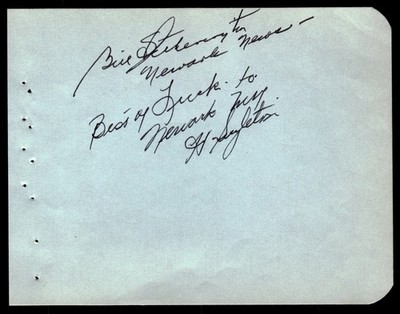 Bill
Newark News -
Best of Luck to
Newark
H Singleton